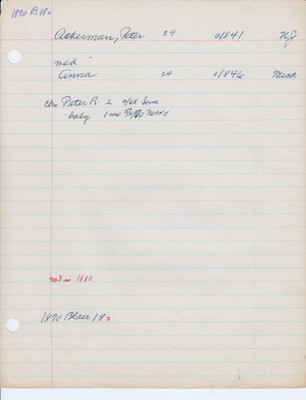 1870 B 18=
Ackerman, Peter 29 c/1841 NJ
med
Anna 24 c/1846 Mich
Chn Peter R 2 c/68 Iowa
baby 1 mo Nebr
not in 1880
1870 Blair 18=